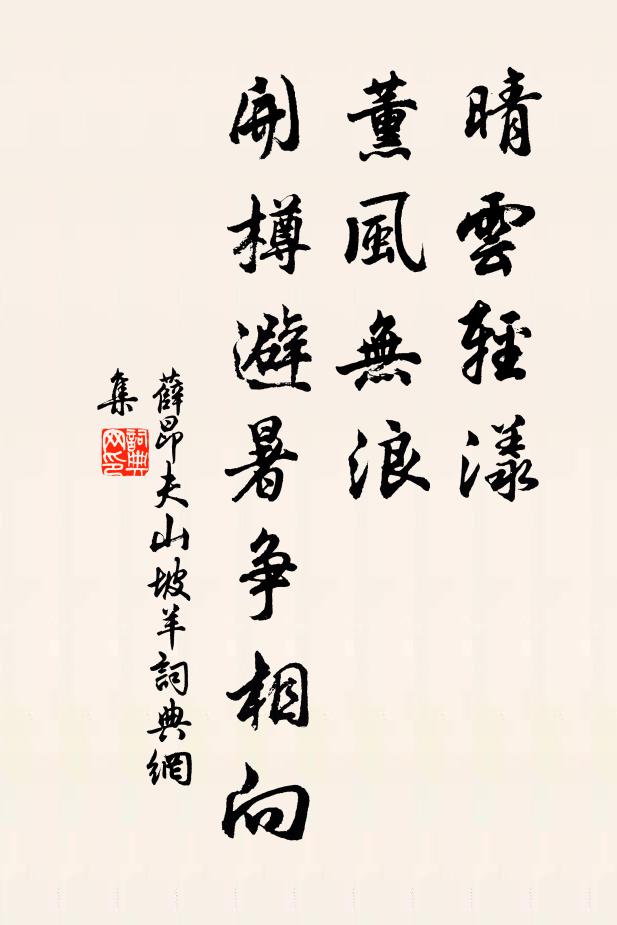 晴雲輕漾
薰風無浪
開樽避暑爭相向
薛昂夫山坡羊詞典網
集
詞典
网印